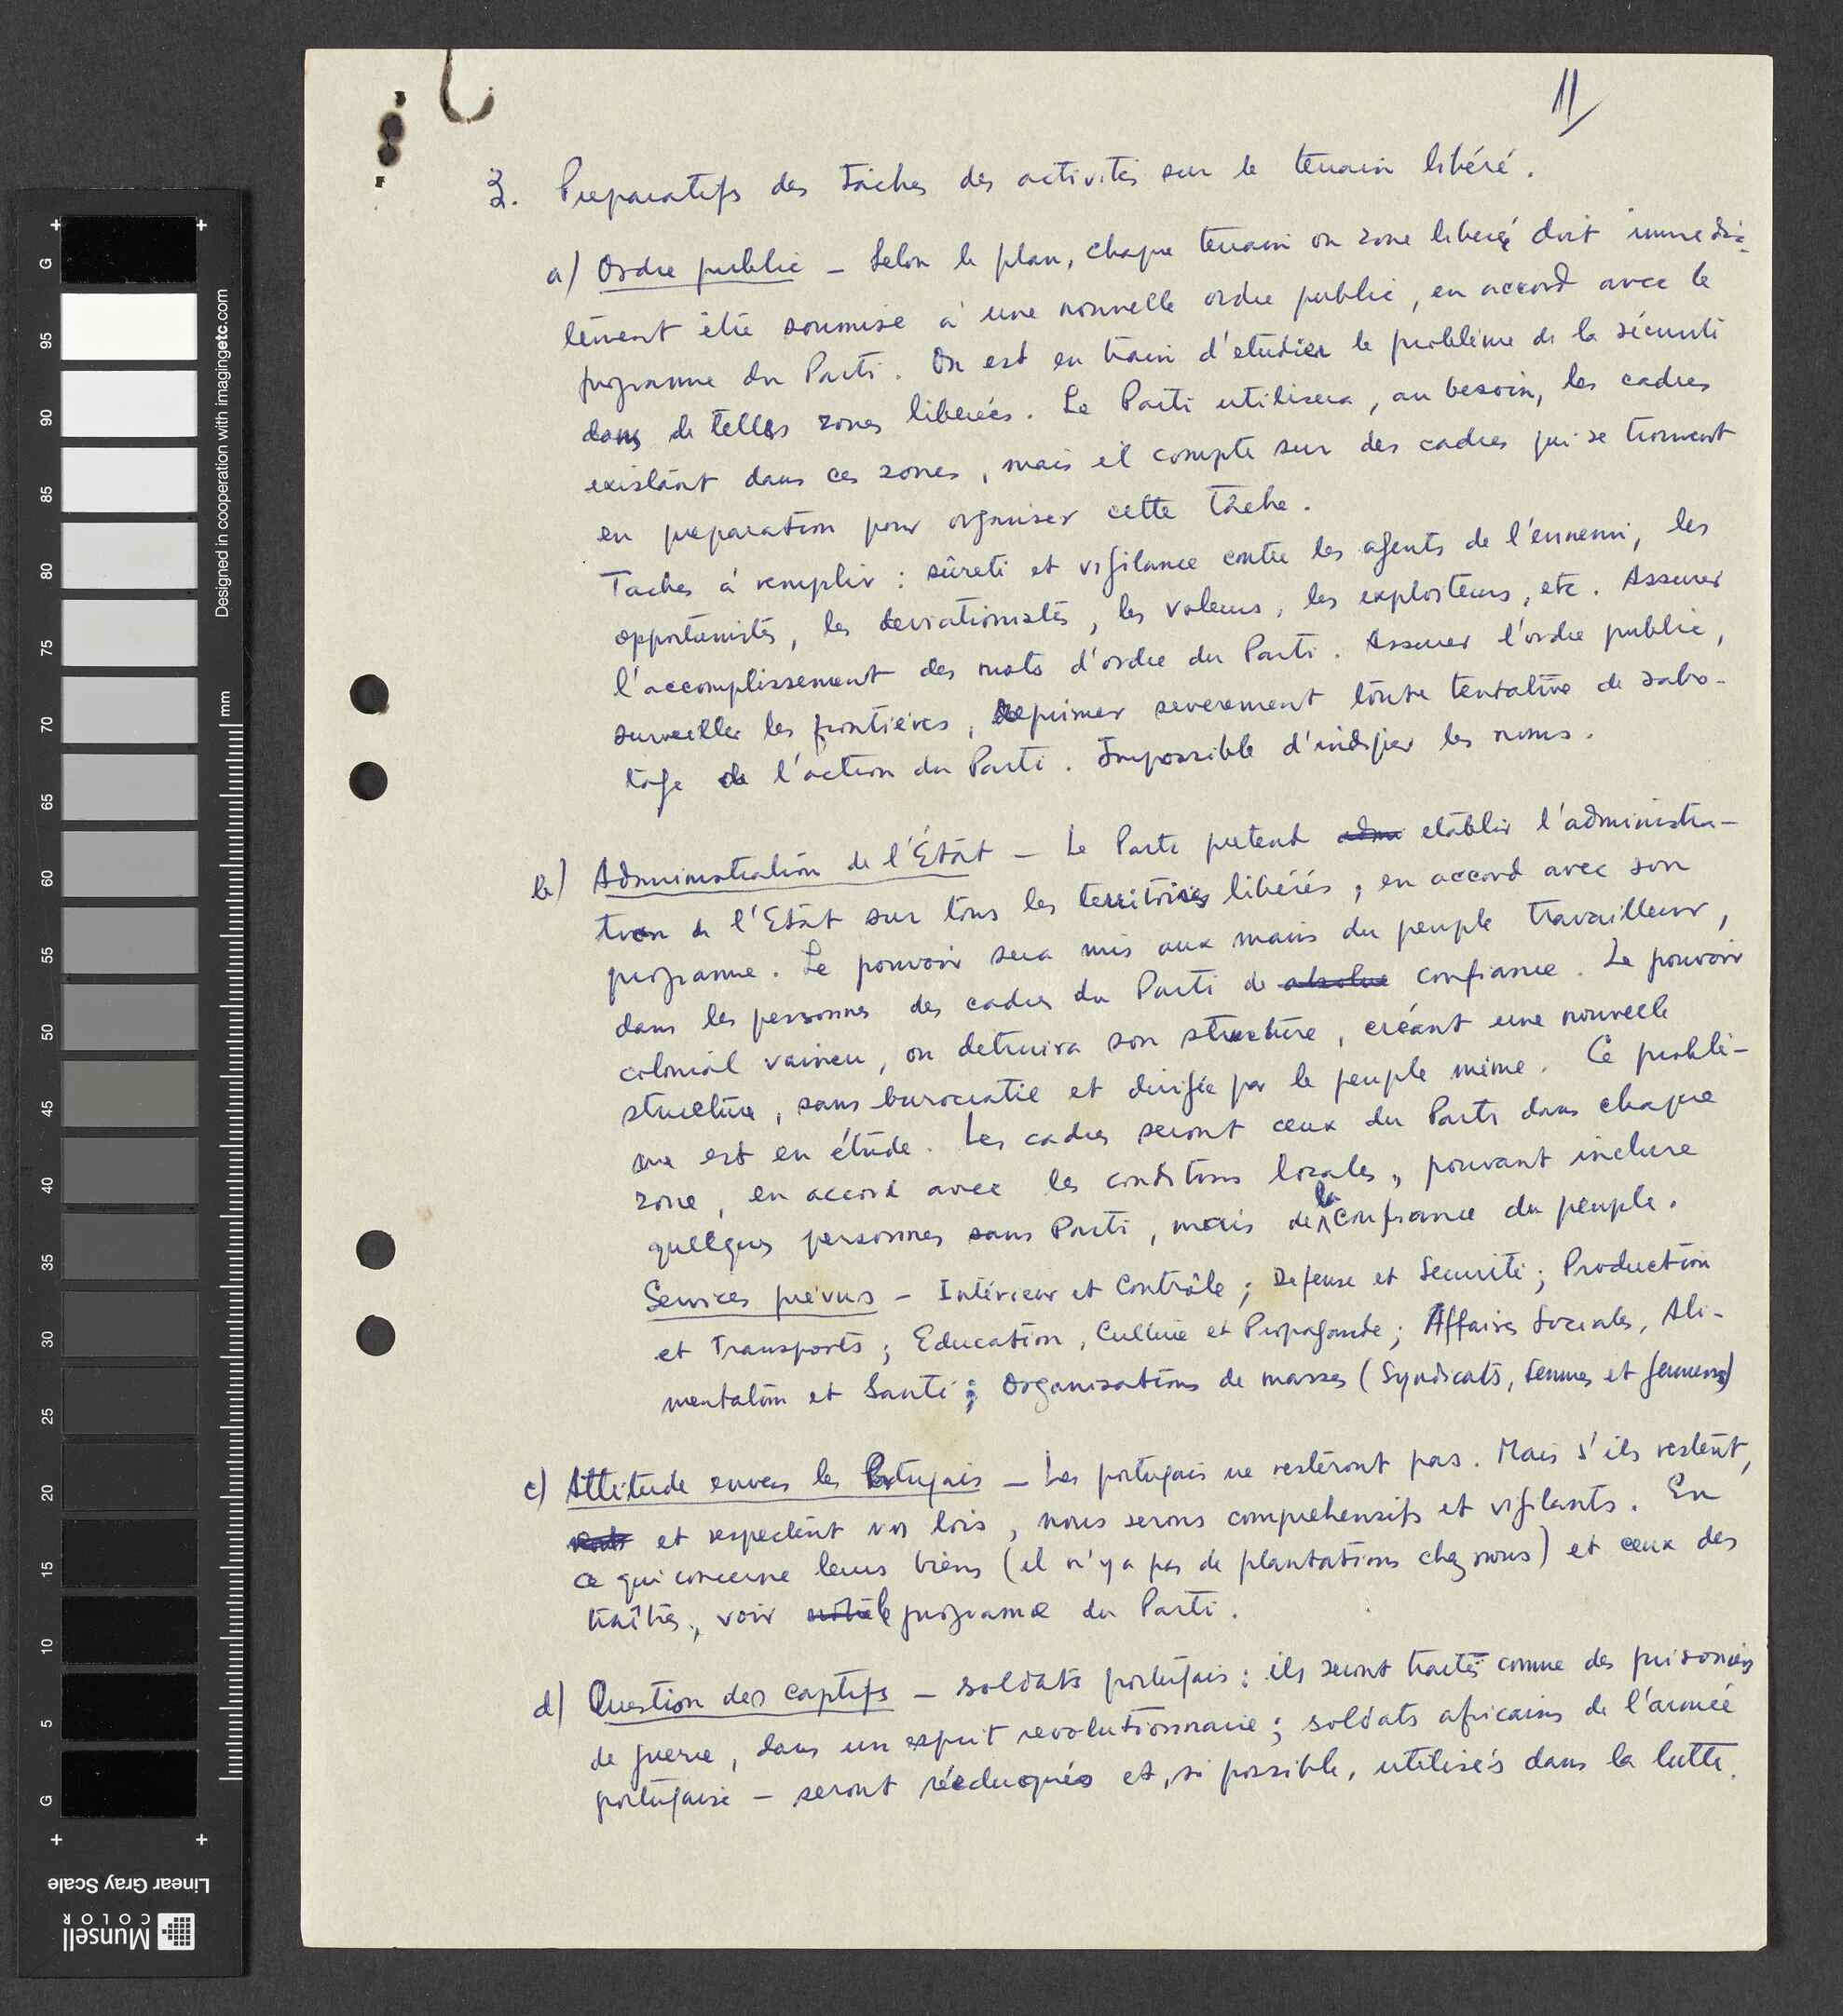 11
3. Preparatifs des tâches des activités sur le terrain libéré.
a) Ordre public - Selon le plan, chaque terrain ou zone liberée doit immedia-
tement être soumise à une nouvelle ordre public, en accord avec le
programme du Parti. On est en train d'etudier le problème de la sécurité
dans de telles zones liberées. Le Parti utilisera, au besoin, les cadres
existant dans ces zones, mais il compte sur des cadres qui se trouvent
en preparation pour organiser cette tâche.
Taches à remplir : sûreté et vigilance contre les agents de l'ennemi, les
opportunistes, les deviationnistes, les voleurs, les exploiteurs, etc. Assurer
l'accomplissement des mots d'ordre du Parti. Assurer l'ordre public,
surveiller les frontières, reprimer severement toute tentative de sabo-
tage de l'action du Parti. Impossible d'indiquer les noms.
b) Administration de l'État - Le Parti pretend adm etablir l'administra-
tion de l'Etat sur tous les territoires libérés, en accord avec son
programme. Le pouvoir sera mis aux mains du peuple travailleur,
dans les personnes des cadres du Parti de absolue confiance. Le pouvoir
colonial vaincu, on detruira son structure, créant une nouvelle
structure, sans burocratie et dirigée par le peuple même. Ce problè-
me est en étude. Les cadres seront ceux du Parti dans chaque
zone, en accord avec les conditions locales, pouvant inclure
quelques personnes sans Parti, mais de la confiance du peuple.
Services prévus - Intérieur et Contrôle ; Defense et Securité ; Production
et Transports ; Education, Culture et Propagande ; Affaires Sociales, Ali-
mentation et Santé ; Organisations de masses (Syndicats, femmes et jeunesse)
c) Attitude envers les Portugais - Les portugais ne resteront pas. Mais s'ils restent,
et respectent nos lois, nous serons comprehensifs et vigilants. En
ce qui concerne leurs biens (il n'y a pas de plantations chez nous) et ceux des
traîtres, voir le programe du Parti.
d) Question des captifs - soldats portugais : ils seront traités comme des prisoniers
de guerre, dans un esprit revolutionnaire ; soldats africains de l'armée
portugaise - seront rééduqués et, si possible, utilisés dans la lutte.
G
95
90
85
80
75
70
65
60
55
50
45
40
35
30
25
20
15
10
5
G
Designed in cooperation with imagingetc.com
mm
Linear Gray Scale
Munsell
COLOR